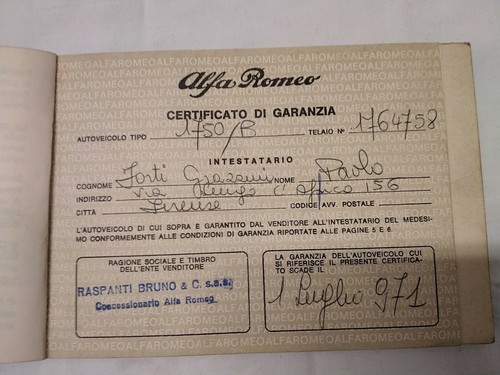 Alfa Romeo
CERTIFICATO DI GARANZIA
AUTOVEICOLO TIPO 1750/B TELAIO N° 1764758
INTESTATARIO
COGNOME NOME Paolo
INDIRIZZO Via 156
CITTÀ Firenze CODICE AVV. POSTALE
L'AUTOVEICOLO DI CUI SOPRA E GARANTITO DAL VENDITORE ALL'INTESTATARIO DEL MEDESI-
MO CONFORMEMENTE ALLE CONDIZIONI DI GARANZIA RIPORTATE ALLE PAGINE 5 E 6.
RAGIONE SOCIALE E TIMBRO
DELL'ENTE VENDITORE
RASPANTI BRUNO & C. s.a.s.
Concessionario Alfa Romeo
LA GARANZIA DELL'AUTOVEICOLO CUI
SI RIFERISCE IL PRESENTE CERTIFICA-
TO SCADE IL
1 Luglio 971